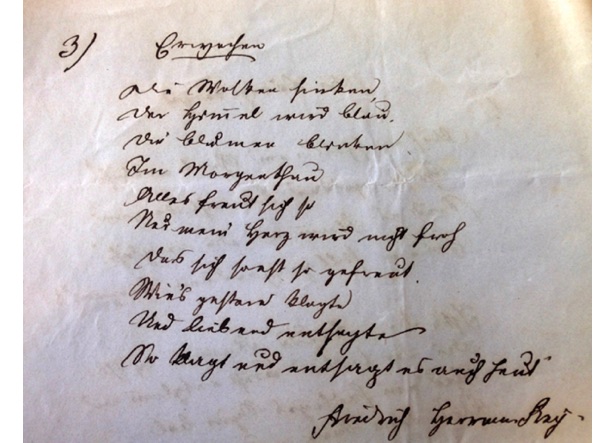 3) Erwachen
Die Wolken sinken,
Der Himmel wird blau.
Die Blumen blinken
Im Morgenthau
Alles freut sich so
Nur mein Herz wird nicht froh
Das sich sonst so gefreut.
Wie's gestern klagte
Und liebend entsagte
So klagt und entsagt es auch heut'
Friedrich Herrmann Frey.